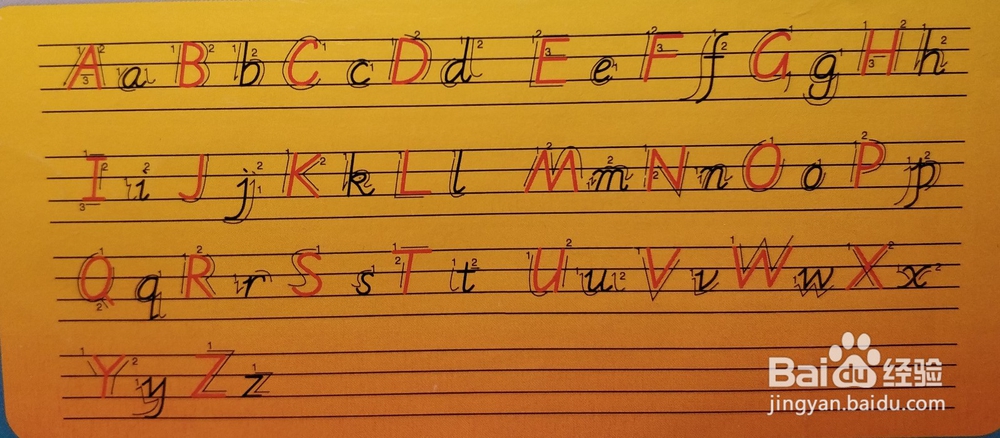 A a B b C c D d E e F f G g H h
I i J j K k L l M m N n O o P p
Q q R r S s T t U u V v W w X x
Y y Z z
Baidu 经验
jingyan.baidu.com